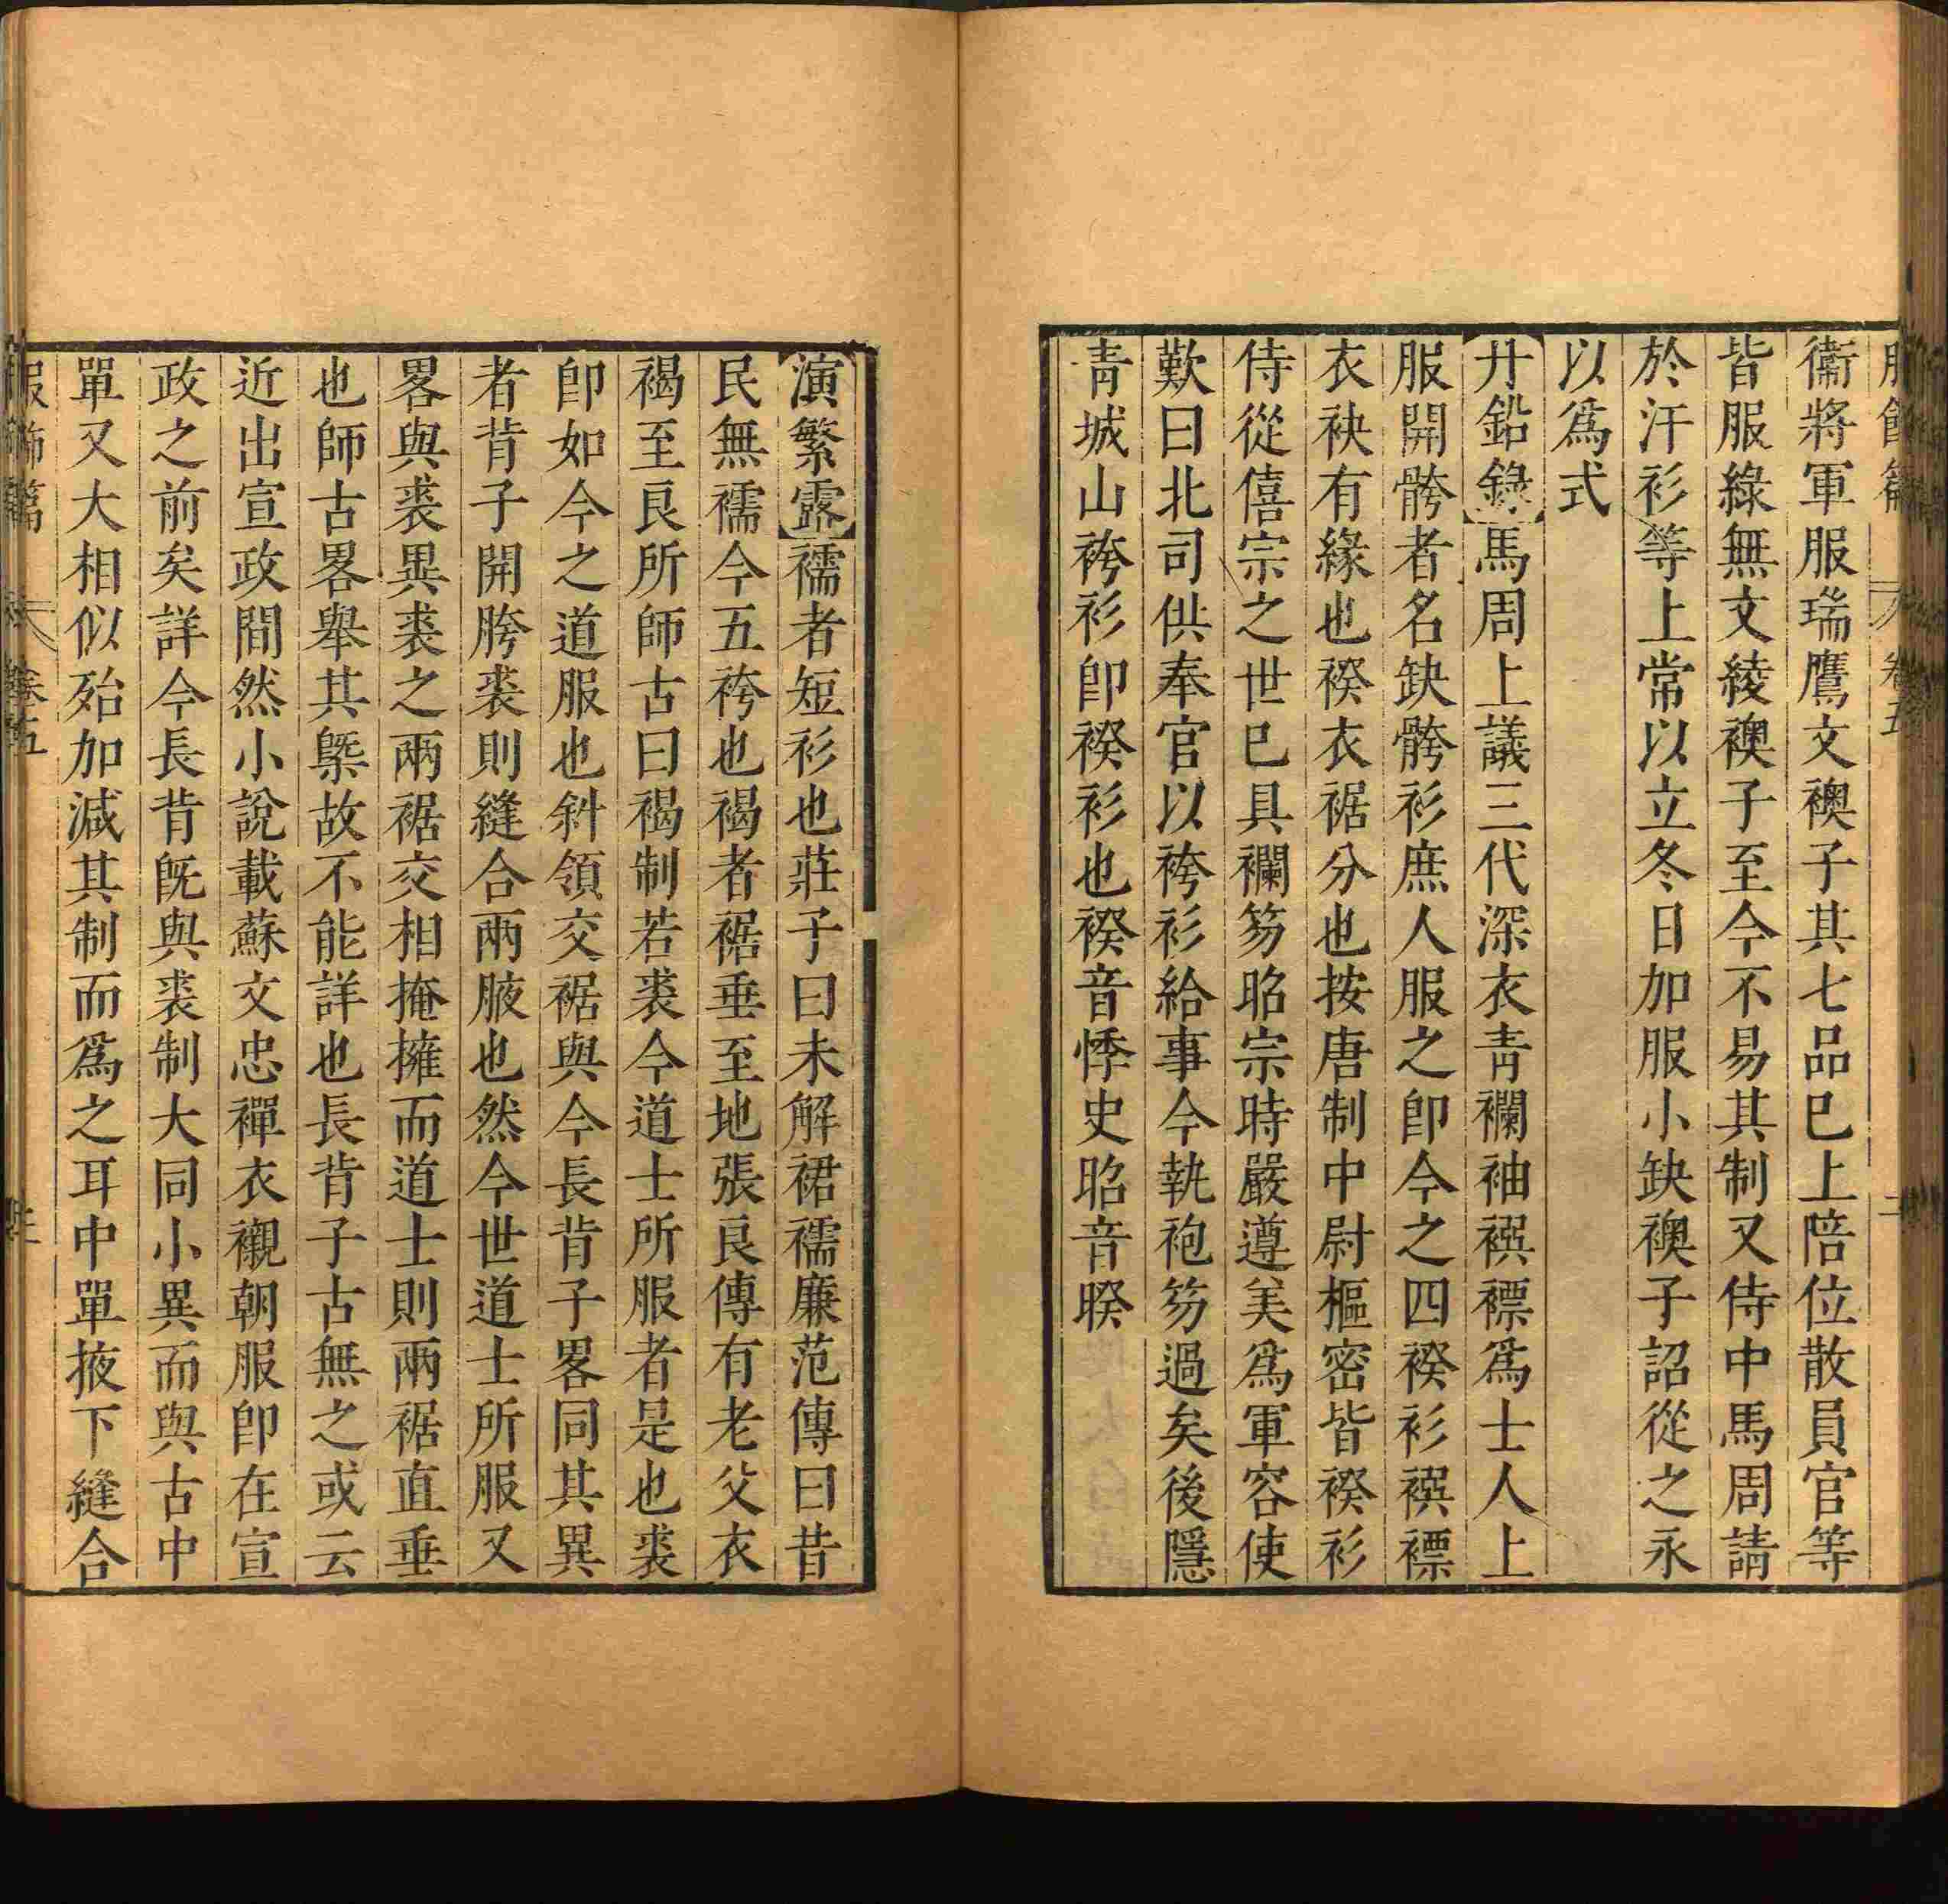 衞將軍服瑞鷹文襖子其七品巳上陪位散員官等
皆服綠無文綾襖子至今不易其制又侍中馬周請
於汗衫等上常以立冬日加服小缺襖子詔從之永
以爲式
廾鉛錄馬周上議三代深衣靑襴袖襈褾爲士人上
服開骻者名缺骻衫庶人服之卽今之四䙆衫襈褾
衣袂有緣也䙆衣裾分也按唐制中尉樞密皆䙆衫
侍從僖宗之世巳具襴笏昭宗時嚴遵美爲軍容使
歎曰北司供奉官以袴衫給事今執袍笏過矣後隱
靑城山袴衫卽䙆衫也䙆音悸史昭音暌
演繁露襦者短衫也莊子曰未解裙襦廉范傳曰昔
民無襦今五袴也褐者裾垂至地張良傳有老父衣
褐至良所師古曰褐制若裘今道士所服者是也裘
卽如今之道服也斜領交裾與今長背子畧同其異
者背子開胯裘則縫合兩腋也然今世道士所服又
畧與裘異裘之兩裾交相掩擁而道士則兩裾直垂
也師古畧舉其槩故不能詳也長背子古無之或云
近出宣政間然小說載蘇文忠襌衣襯朝服卽在宣
政之前矣詳今長背旣與裘制大同小異而與古中
單又大相似殆加減其制而爲之耳中單掖下縫合
服飾篇 卷五